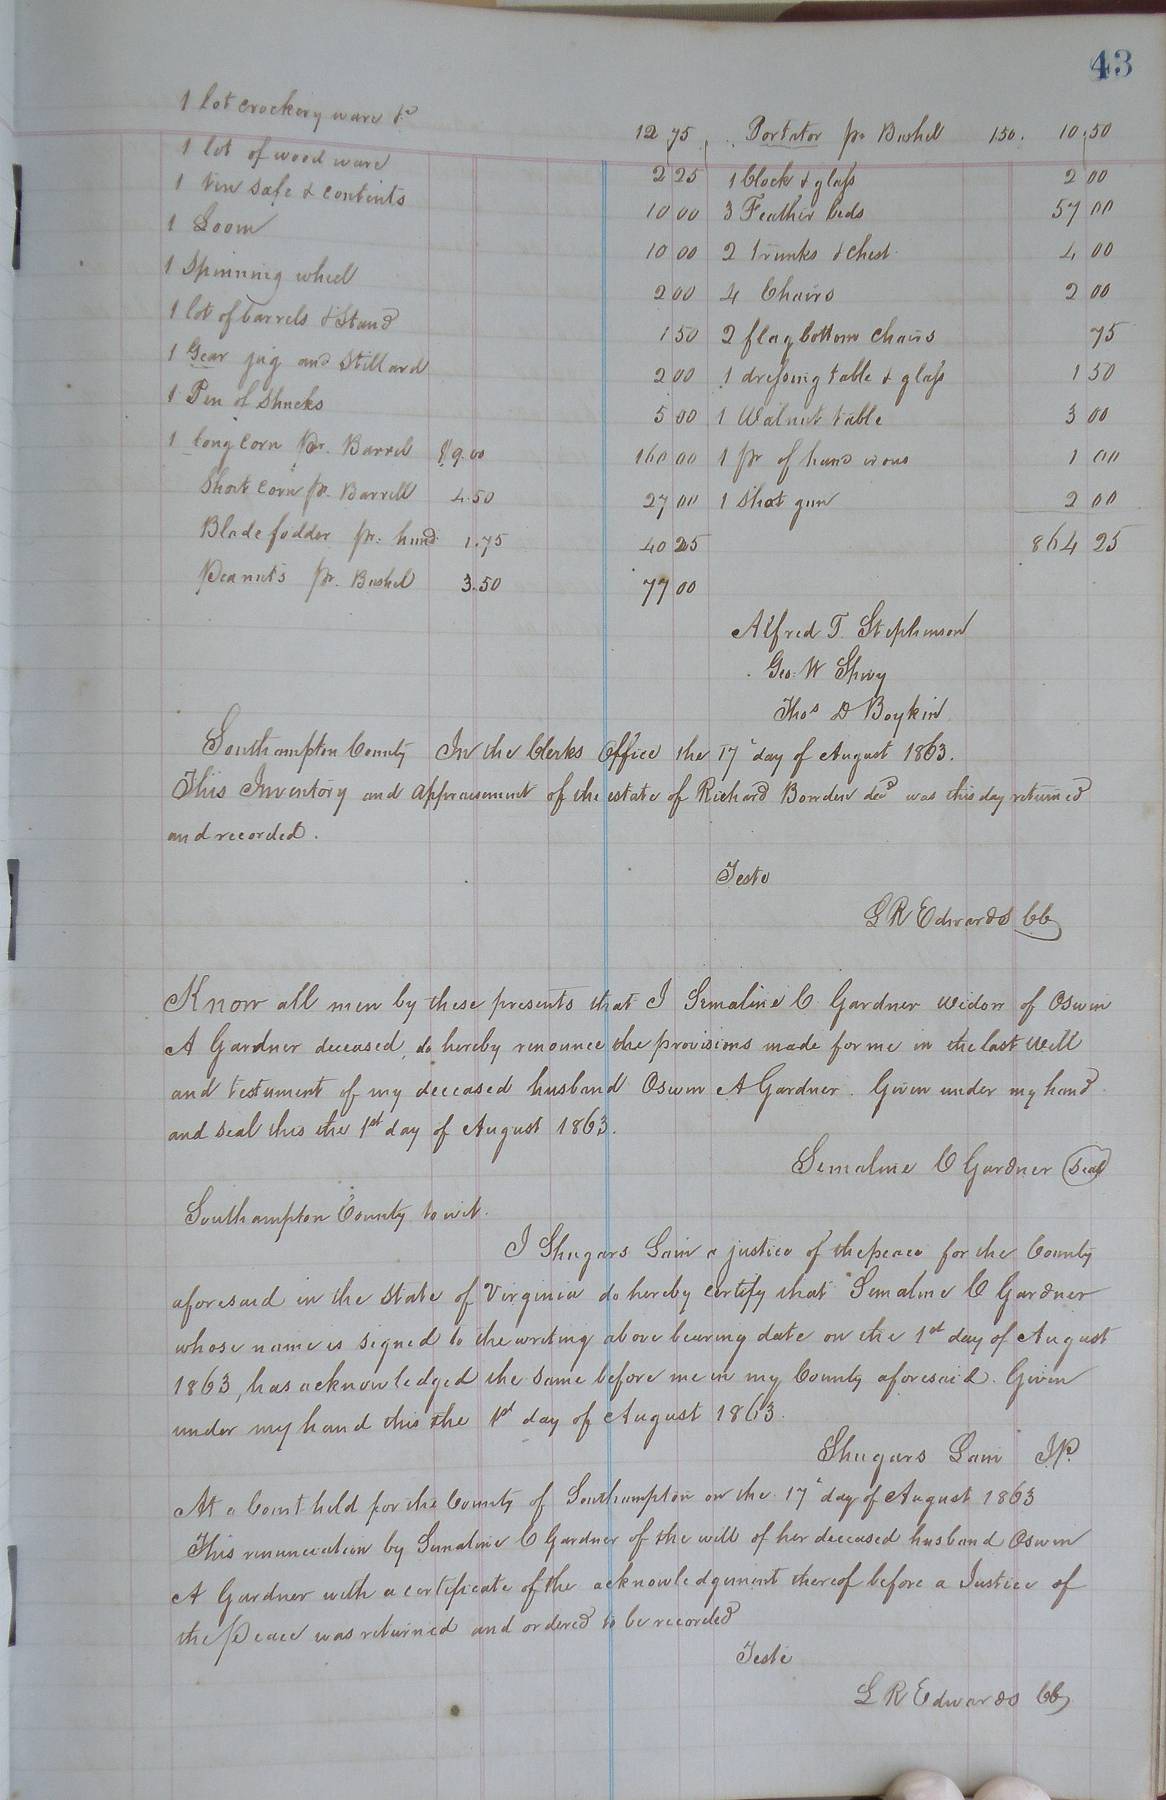 43
1 lot crockery ware &c 12 75
1 lot of wood ware 2 25
1 tin safe & contents 10 00
1 Loom 10 00
1 Spinning wheel 2 00
1 lot of barrels & Stand 1 50
1 Gear jug and Stillard 2 00
1 Pen of Shucks 5 00
1 long Corn Pr. Barrel $9.00 160 00
Short Corn pr. Barrell 4.50 27 00
Blade fodder pr. hund 1.75 40 25
Peanuts pr. Bushel 3.50 77 00
Portator pr Bushel 150. 10,50
1 Clock & glass 2 00
3 Feather beds 57 00
2 trunks & Chest 4 00
4 Chairs 2 00
2 flag bottom Chairs 75
1 dressing table & glass 1 50
1 Walnut table 3 00
1 pr of hand irons 1 00
1 Shot gun 2 00
864 25
Alfred T. Stephenson
Geo. W Spivy
Thos D Boykin
Southampton County In the Clerks Office the 17" day of August 1863.
This Inventory and appraisement of the estate of Richard Bowden decd was this day returned
and recorded.
Teste
L R Edwards CC
Know all men by these presents that I Semaline C Gardner widow of Oswin
A Gardner deceased, do hereby renounce the provisions made for me in the last Will
and testument of my deceased husband Oswin A Gardner. Given under my hand
and Seal this the 1st day of August 1863.
Semaline C Gardner Seal
Southampton County to wit.
I Shugars Lain a justice of the peace for the County
aforesaid in the State of Virginia do hereby certify that Semaline C Gardner
whose name is signed to the writing above bearing date on the 1st day of August
1863, has acknowledged the same before me in my County aforesaid. Given
under my hand this the 1st day of August 1863.
Shugars Lain J.P.
At a Court held for the County of Southampton on the 17" day of August 1863
This renunciation by Semaline C Gardner of the will of her deceased husband Oswin
A Gardner with a certificate of the acknowledgement thereof before a Justice of
the Peace was returned and ordered to be recorded
Teste
L R Edwards CC